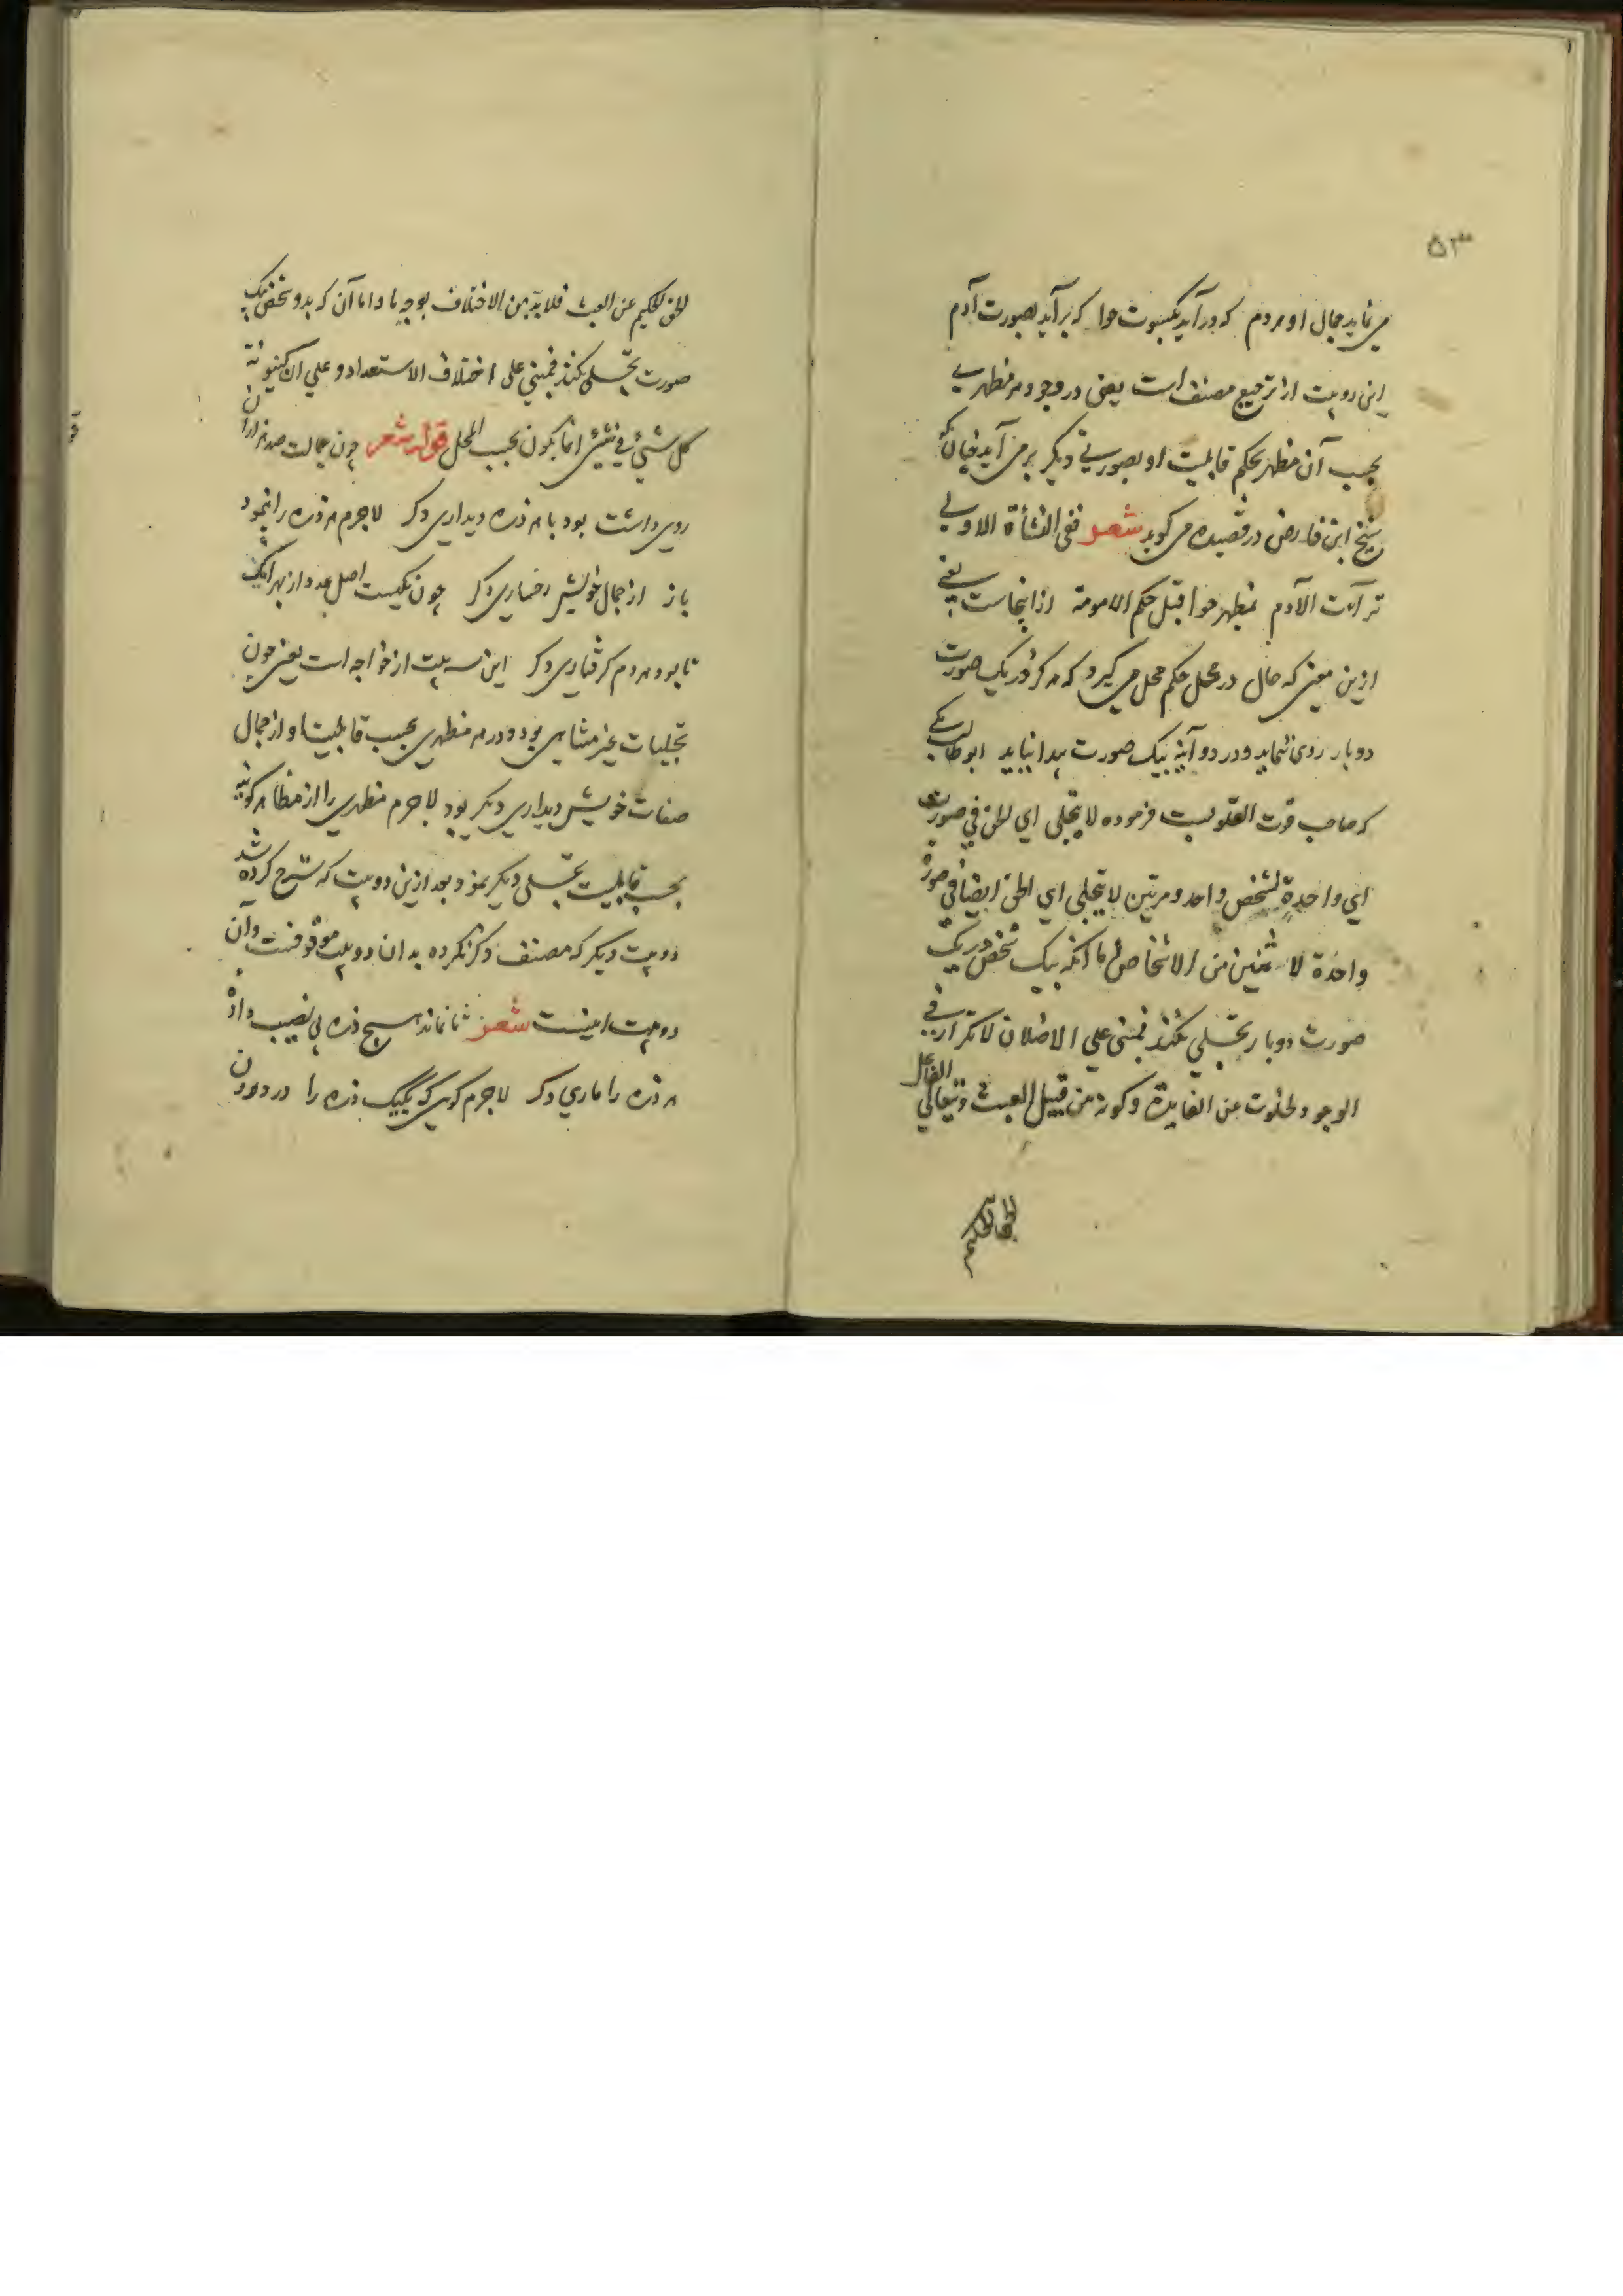 ۵۳
می نماید جمال او هر دم که در آید بکسوت حوا که برآید بصورت آدم
این دو بیت از ترجیع مصنف است یعنی در وجود هر مظهری
بحسب آن مظهر بحکم قابلیت او بصورتی دیگر بر می آید چنانکه
شیخ ابن فارض در قصیده می گوید شعر ففی النشأة الاولی
ترآءت لآدم بمظهر حوا قبل حکم الامومة از اینجاست یعنی
ازین معنی که حال در محل حکم محل می گیرد که هرگز در یک صورت
دو بار روی ننماید و در دو آینه بیک صورت پیدا نیاید ابوطالب مکی
که صاحب قوت القلوبست فرموده لا یتجلی ای الحق فی صورت
ای واحدة لشخص واحد مرتین لا یتجلی ای الحق ایضا فی صورة
واحدة لا ثنین من الاشخاص اما آنکه بیک شخص در یک
صورت دو بار تجلی نکند فمبنی علی الاصلان لا تکرار فی
الوجود لخلوت عن الفایدة و کونه من قبیل العبث و تعالی الفاعل
الحق الحکیم
الحق الحکیم عن العبث فلا بد من الاختلاف بوجه ما و اما آن که بدو شخص بیک
صورت تجلی نکند فمبنی علی اختلاف الاستعداد و علی ان کینونة
کل شیئ فی شیئ انما یکون بحسب المحل قوله شعر چون جمالت صد هزاران
روی داشت بود با هر ذره دیداری دگر لاجرم هر ذره را بنمود
باز از جمال خویش رخساری دگر چون یکیست اصل عدد از بهر آنک
تا بود هر دم گرفتاری دگر این سه بیت از خواجه است یعنی چون
تجلیات غیر متناهی بود و در هر مظهری بحسب قابلیت او از جمال
صفات خویش دیداری دیگر بود لاجرم مظهری را از مظاهر کونیه
بحسب قابلیت تجلی دیگر نمود بعد ازین دو بیت که شرح کرده شد
دو بیت دیگر که مصنف ذکر نکرده بدان دو بیت موقوفست و آن
دو بیت اینست شعر تا نماند هیچ ذره بی نصیب داد
هر ذره را باری دگر لاجرم یک بیک ذره را در درون